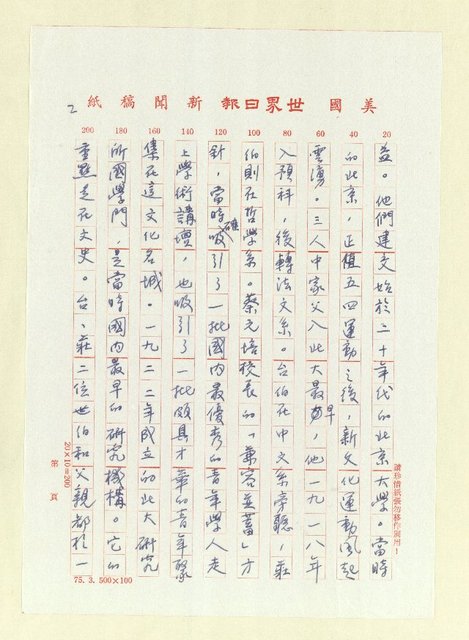 美國世界日報新聞稿紙
2
20 40 60 80 100 120 140 160 180 200
益。他們建交始於二十年代的北京大學。當時
的北京,正值五四運動之後,新文化運動風起
雲湧。三人中家父入北大最早,他一九一八年
入預科,後轉法文系。台伯在中文系旁聽,莊
伯則在哲學系。蔡元培校長的「兼容並蓄」方
針,當時確吸引了一批國內最優秀的青年學人走
上學術講壇,也吸引了一批頗具才華的青年聚
集在這文化名城。一九二二年成立的北大研究
所國學門,是當時國內最早的研究機構。它的
重點是在文史。台、莊二位世伯和父親都於一
請珍惜紙張勿移作別用!
20×10=200
第 頁
75.3.500×100